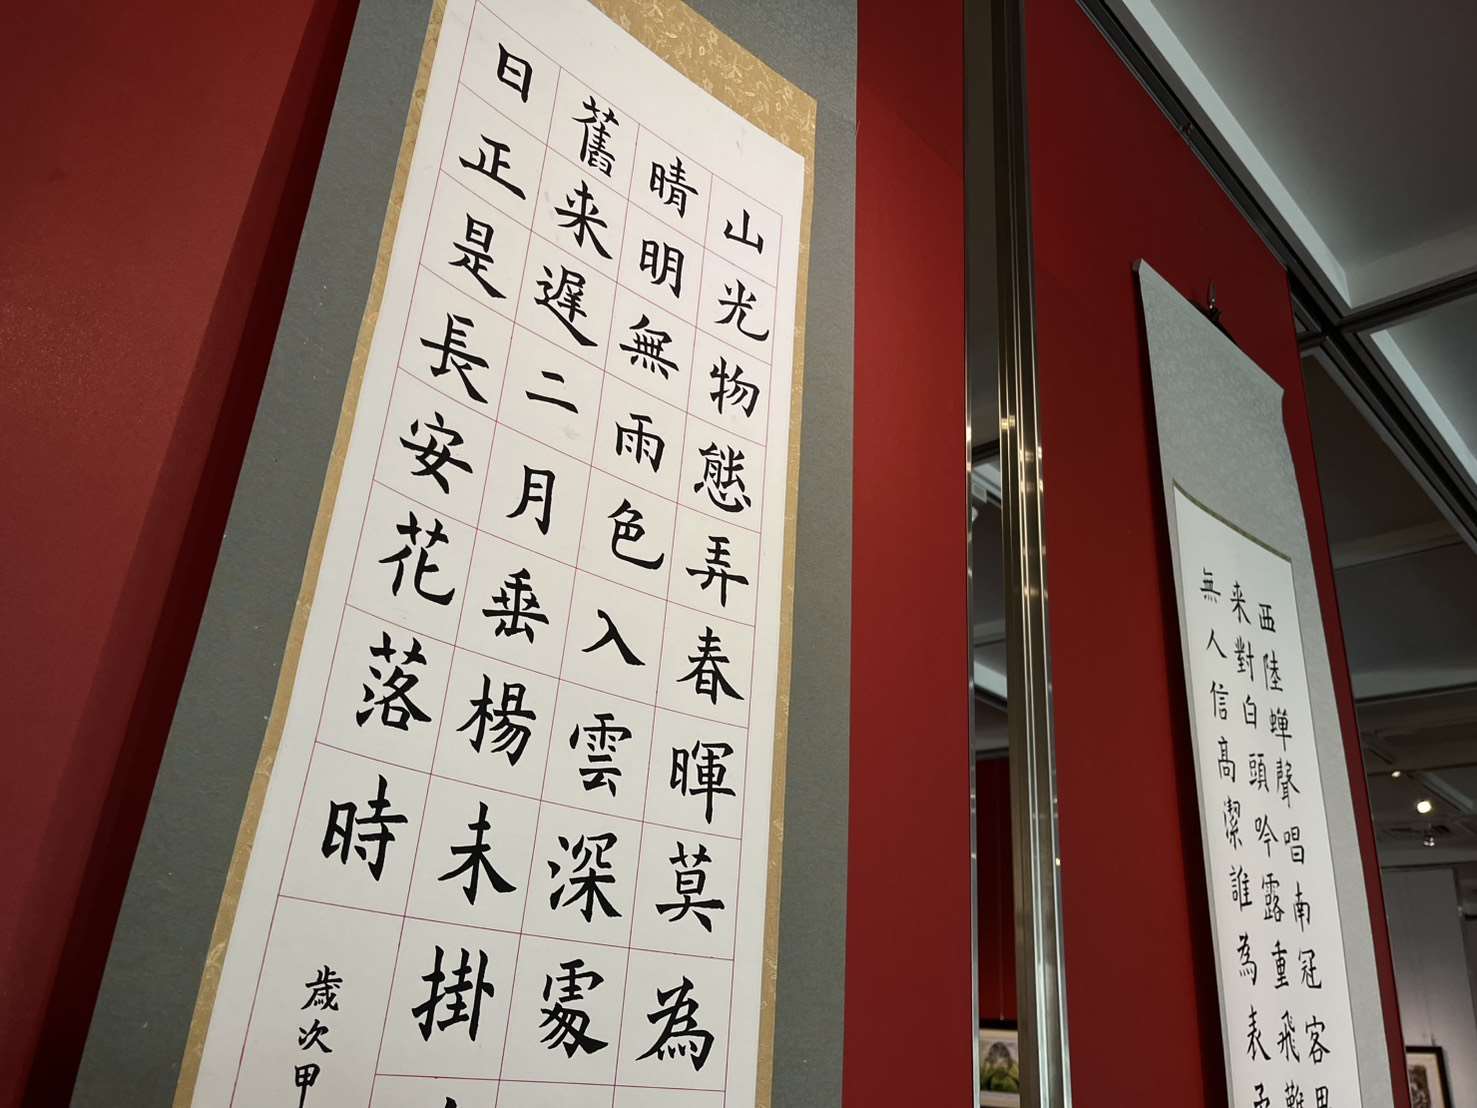 山光物態弄春暉莫為
晴明無雨色入雲深處
舊来遲二月垂楊未掛
日正是長安花落時
歳次甲
西陸蟬聲唱南冠客
来對白頭吟露重飛難
無人信高潔誰為表予